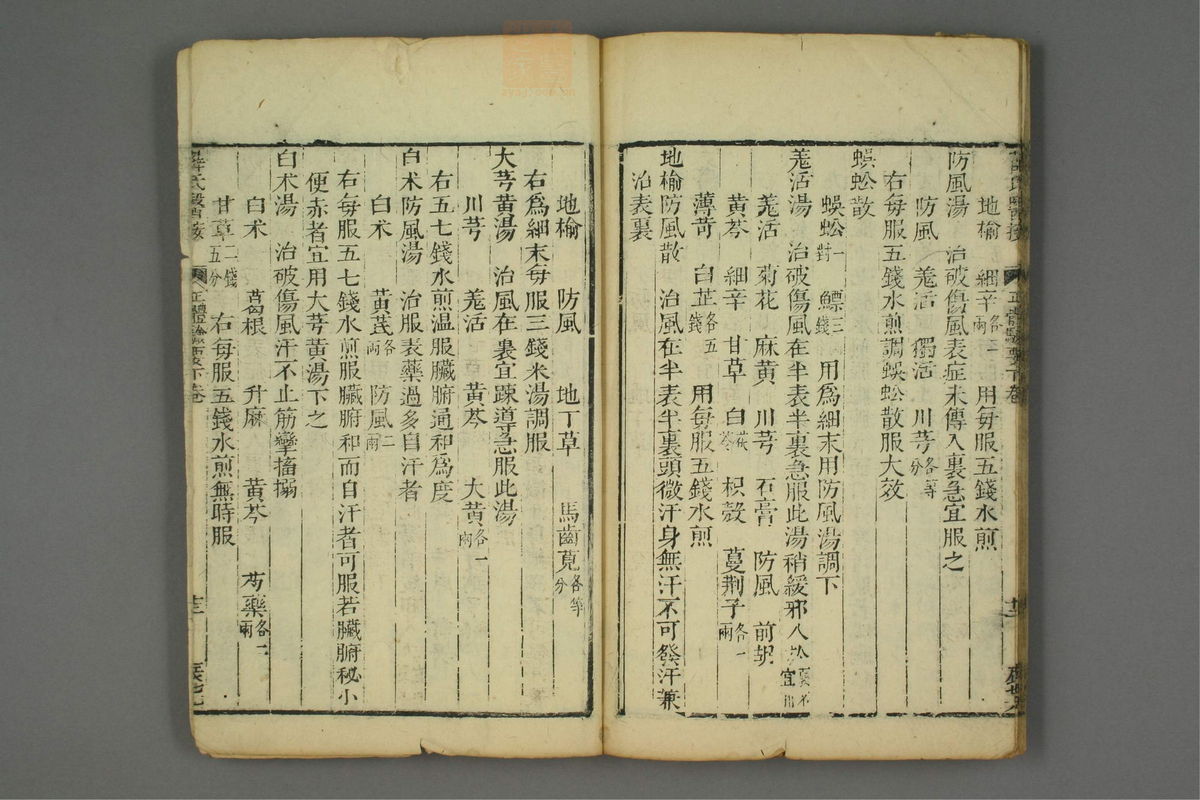 地榆　細辛各一兩　用每服五錢水煎
防風湯　治破傷風表症未傳入裏急宜服之
防風　羗活　獨活　川芎各等分
右每服五錢水煎調蜈蚣散服大效
蜈蚣散
蜈蚣一對　鰾三錢　用為細末用防風湯調下
羗活湯　治破傷風在半表半裏急服此湯稍緩邪入於裏不宜用
羗活　菊花　麻黃　川芎　石膏　防風　前胡
黃芩　細辛　甘草　白茯苓　枳殼　蔓荆子各一兩
薄苛　白芷各五錢　用每服五錢水煎
地榆防風散　治風在半表半裏頭微汗身無汗不可發汗兼
治表裏
地榆　防風　地丁草　馬齒莧各等分
右為細末每服三錢米湯調服
大芎黃湯　治風在裏宜踈導急服此湯
川芎　羗活　黃芩　大黃各一兩
右五七錢水煎溫服臟腑通和為度
白术防風湯　治服表藥過多自汗者
白术　黃芪各一兩　防風二兩
右每服五七錢水煎服臟腑和而自汗者可服若臟腑秘小
便赤者宜用大芎黃湯下之
白术湯　治破傷風汗不止筋攣搐搦
白术　葛根　升麻　黃芩　芍藥各二兩
甘草二錢五分　右每服五錢水煎無時服
正體類要下卷